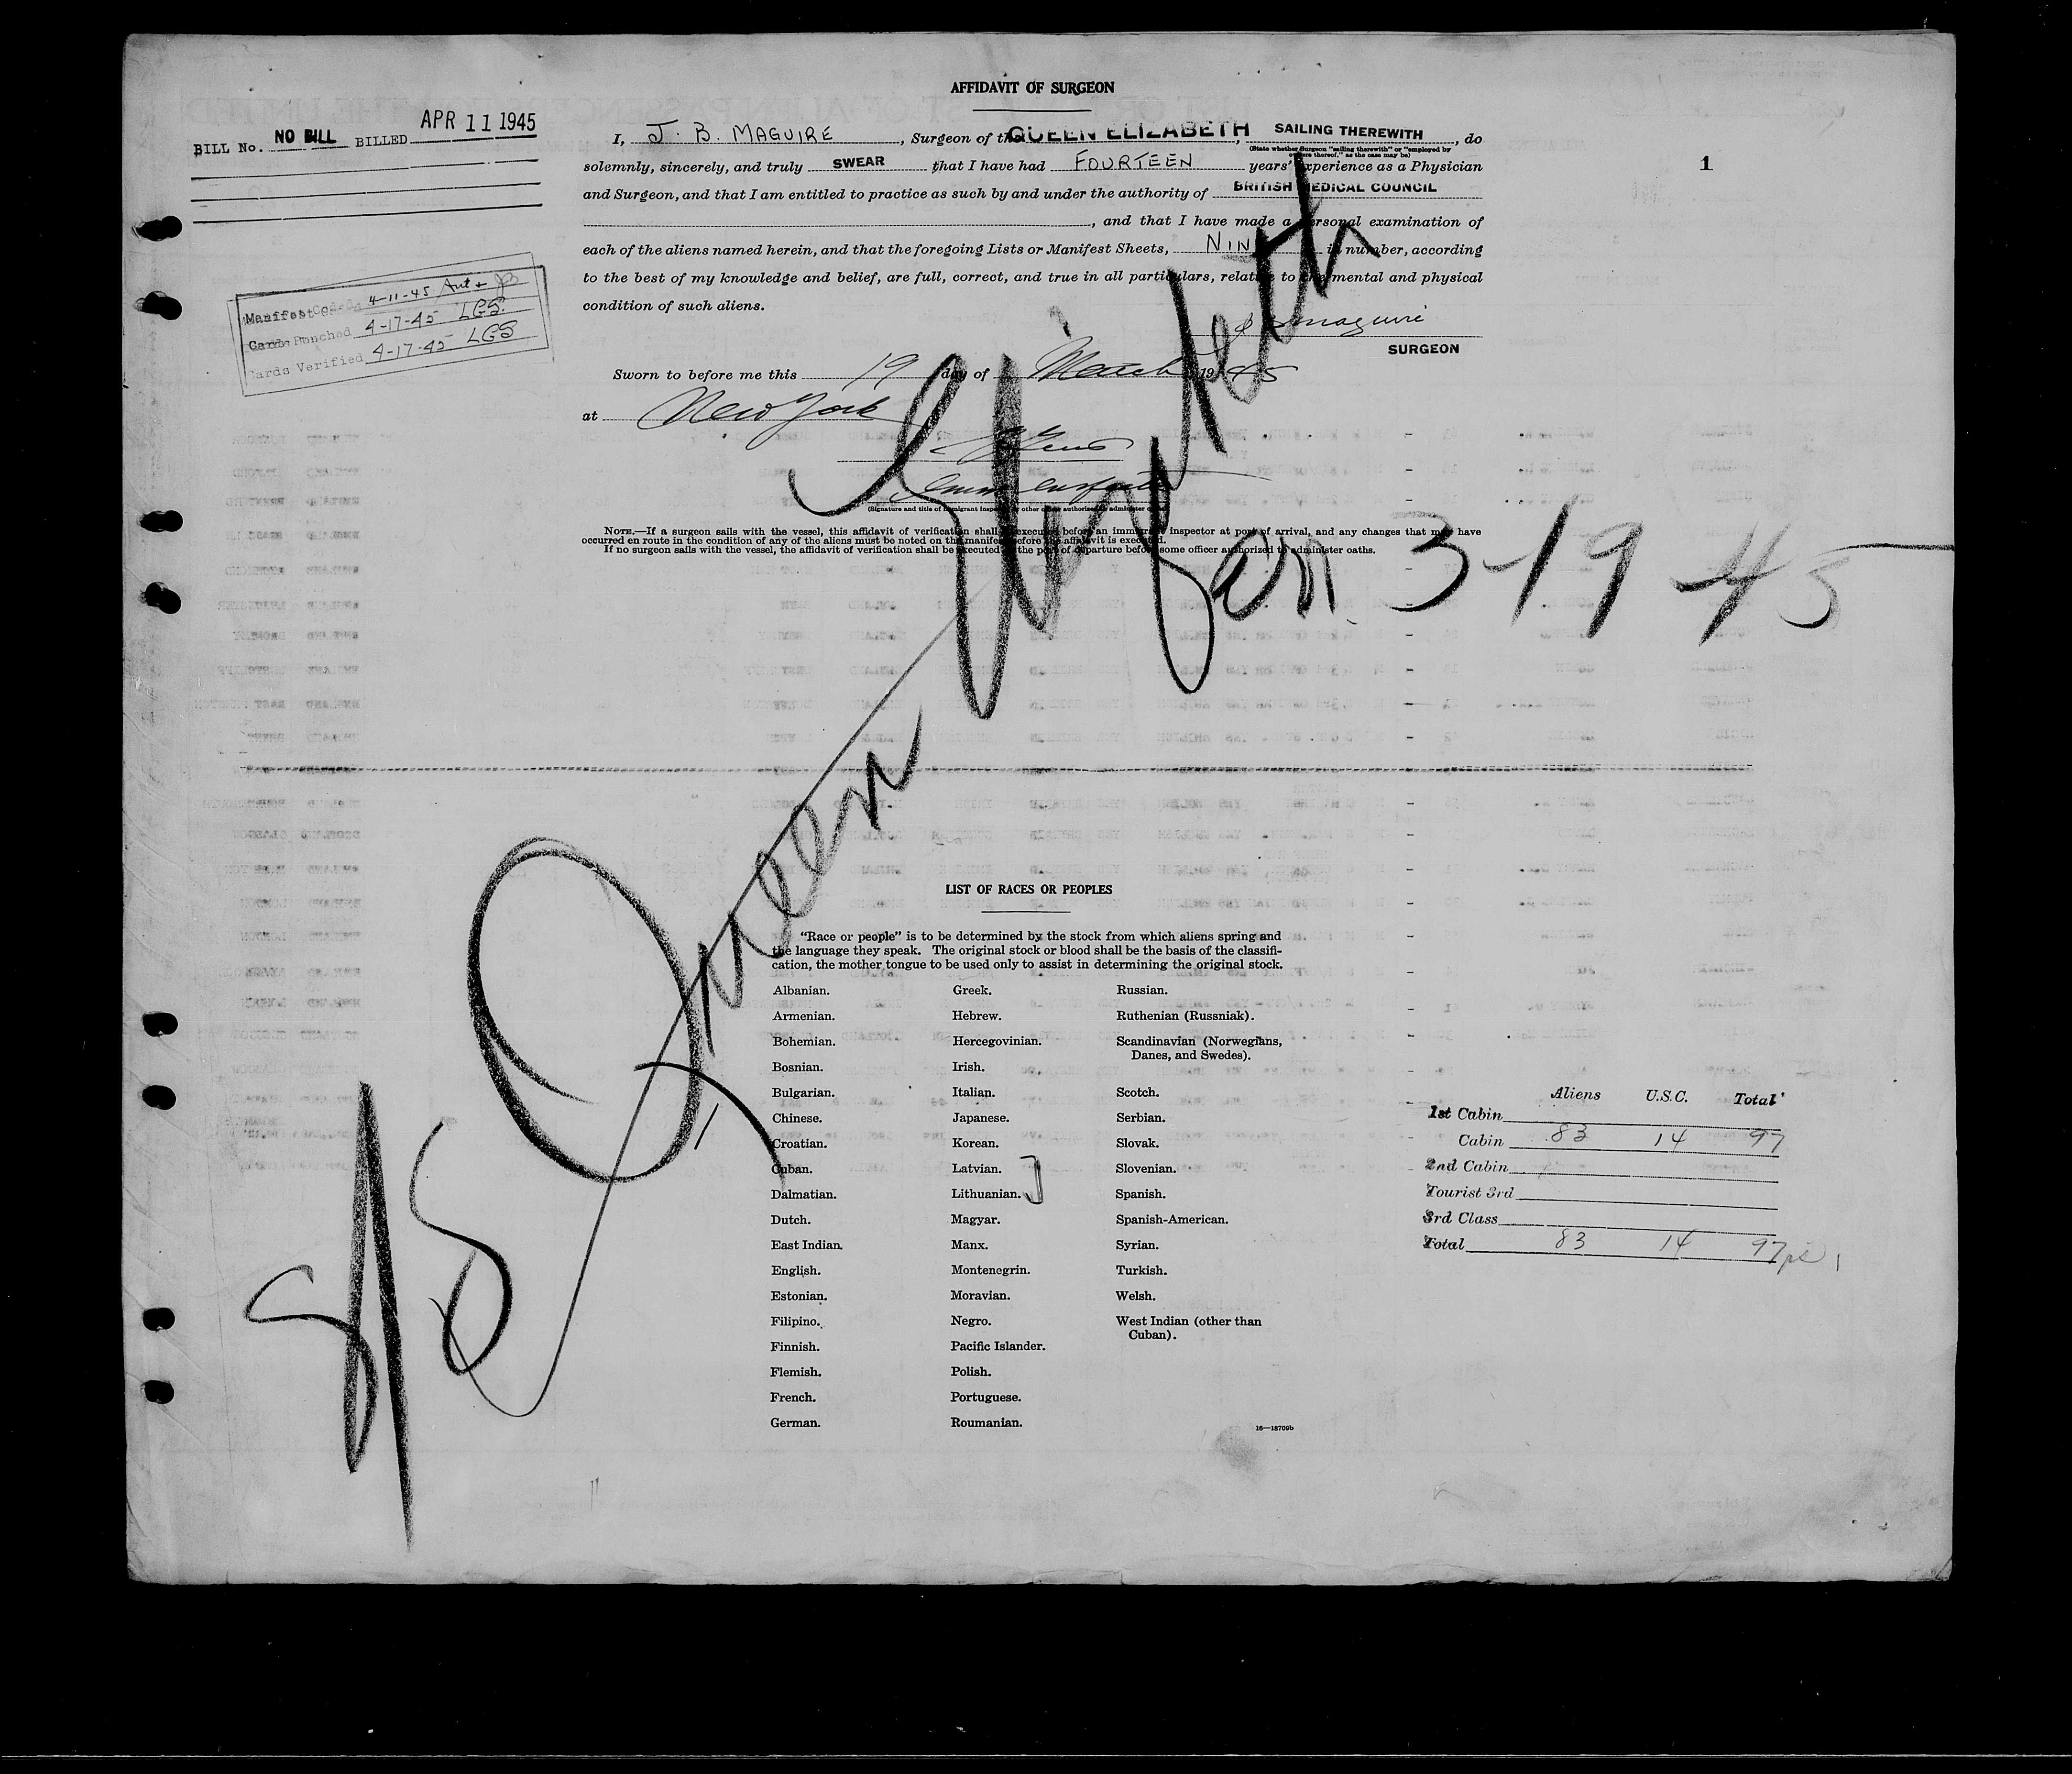 AFFIDAVIT OF SURGEON
BILL No. NO BILL BILLED APR 11 1945
1
I, J. B. MAGUIRE, Surgeon of the QUEEN ELIZABETH, SAILING THEREWITH, do
(State whether Surgeon "sailing therewith" or "employed by
owners thereof," as the case may be)
solemnly, sincerely, and truly SWEAR that I have had FOURTEEN years' experience as a Physician
and Surgeon, and that I am entitled to practice as such by and under the authority of BRITISH MEDICAL COUNCIL
, and that I have made a personal examination of
each of the aliens named herein, and that the foregoing Lists or Manifest Sheets, NINE in number, according
to the best of my knowledge and belief, are full, correct, and true in all particulars, relative to the mental and physical
condition of such aliens.
J B Maguire
SURGEON
Manifest Coded 4-11-45
Cards Punched 4-17-45 LGS
Cards Verified 4-17-45 LGS
Sworn to before me this 19 day of March 1945
at New York
(Signature and title of immigrant inspector or other officer authorized to administer oaths)
NOTE.—If a surgeon sails with the vessel, this affidavit of verification shall be executed before an immigrant inspector at port of arrival, and any changes that may have
occurred en route in the condition of any of the aliens must be noted on the manifest before the affidavit is executed.
If no surgeon sails with the vessel, the affidavit of verification shall be executed at the port of departure before some officer authorized to administer oaths.
S/S Queen Elizabeth
arr. 3-19 45
LIST OF RACES OR PEOPLES
"Race or people" is to be determined by the stock from which aliens spring and
the language they speak. The original stock or blood shall be the basis of the classifi-
cation, the mother tongue to be used only to assist in determining the original stock.
Albanian. Greek. Russian.
Armenian. Hebrew. Ruthenian (Russniak).
Bohemian. Hercegovinian. Scandinavian (Norwegians,
Danes, and Swedes).
Bosnian. Irish.
Bulgarian. Italian. Scotch.
Chinese. Japanese. Serbian.
Croatian. Korean. Slovak.
Cuban. Latvian. Slovenian.
Dalmatian. Lithuanian. Spanish.
Dutch. Magyar. Spanish-American.
East Indian. Manx. Syrian.
English. Montenegrin. Turkish.
Estonian. Moravian. Welsh.
Filipino. Negro. West Indian (other than
Cuban).
Finnish. Pacific Islander.
Flemish. Polish.
French. Portuguese.
German. Roumanian.
16—18709b
Aliens U.S.C. Total
1st Cabin
Cabin 83 14 97
2nd Cabin
Tourist 3rd
3rd Class
Total 83 14 97